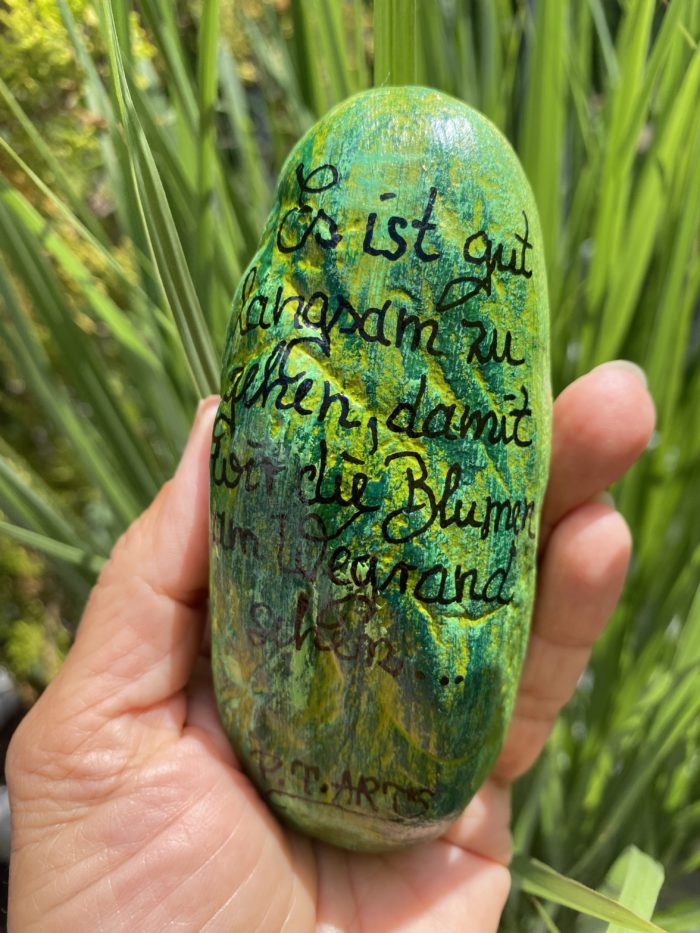 Es ist gut
langsam zu
gehen, damit
wir die Blumen
am Wegrand
sehen...
P.T.ARTS